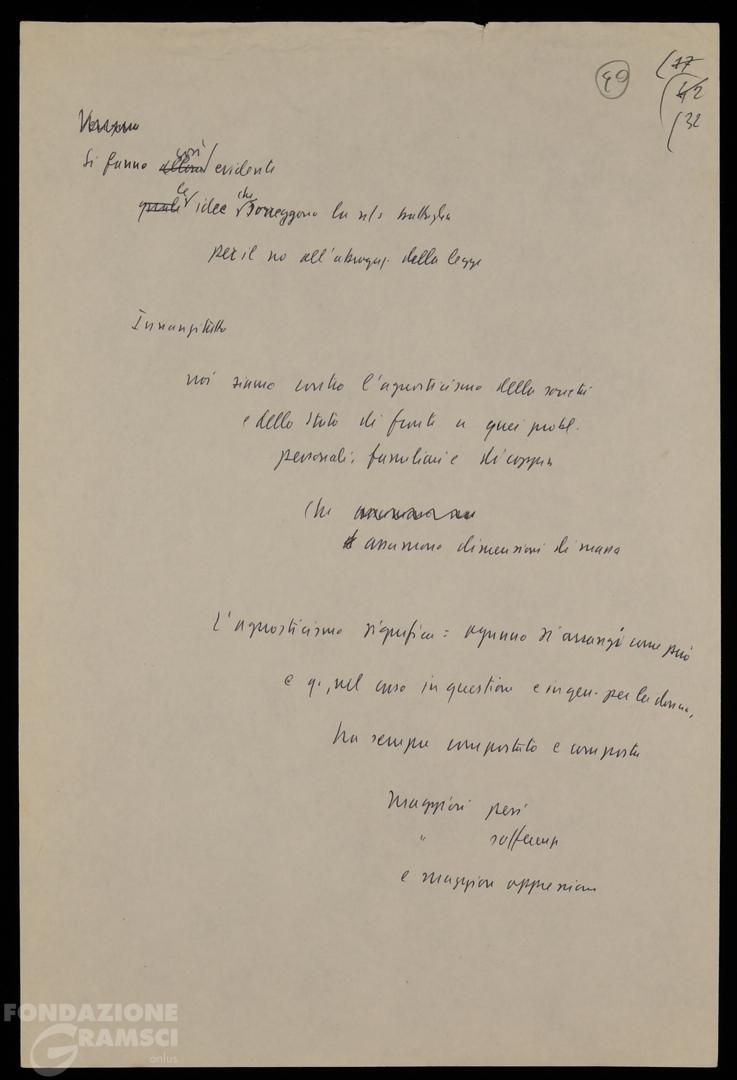 40
(77
(42
(32
Si fanno allora così evidenti
quali le idee che sorreggono la n/s battaglia
per il no all'abrogaz. della legge
Innanzitutto
noi siamo contro l'agnosticismo della società
e dello Stato di fronte a quei probl.
personali, familiari e di coppia
che
assumono dimensioni di massa
L'agnosticismo significa: ognuno si arrangi come può
e q., nel caso in questione e in gen. per la donna,
ha sempre comportato e comporta
maggiori pesi
" sofferenze
e maggiore oppressione
FONDAZIONE
GRAMSCI
onlus